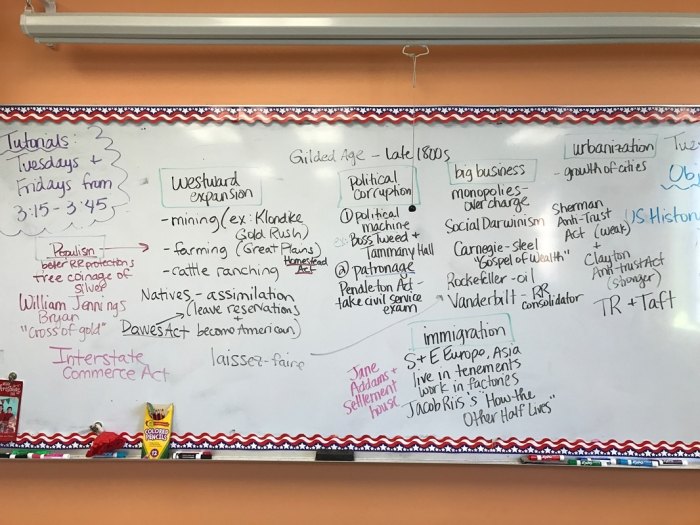 Tutorials:
Tuesdays +
Fridays from
3:15 - 3:45
Gilded Age - Late 1800s
Westward
expansion
- mining (ex: Klondike
Gold Rush)
- farming (Great Plains)
Homestead
Act
- cattle ranching
Natives - assimilation
(leave reservations
+
Dawes Act become American)
laissez-faire
Populism -
better RR protections
free coinage of
silver
William Jennings
Bryan
"cross of gold"
Interstate
Commerce Act
Political
Corruption
① political
machine
ex: Boss Tweed +
Tammany Hall
② patronage
Pendleton Act -
take civil service
exam
big business
monopolies -
overcharge
Social Darwinism
Carnegie - steel
"Gospel of Wealth"
Rockefeller - oil
Vanderbilt - RR
consolidator
Sherman
Anti-Trust
Act (weak)
+
Clayton
Anti-trust Act
(stronger)
TR + Taft
urbanization
- growth of cities
immigration
S + E Europe, Asia
live in tenements
work in factories
Jacob Riis's "How the
Other Half Lives"
Jane
Addams +
Settlement
house
Tue
Obj
US Histor
COLORED
PENCILS
12